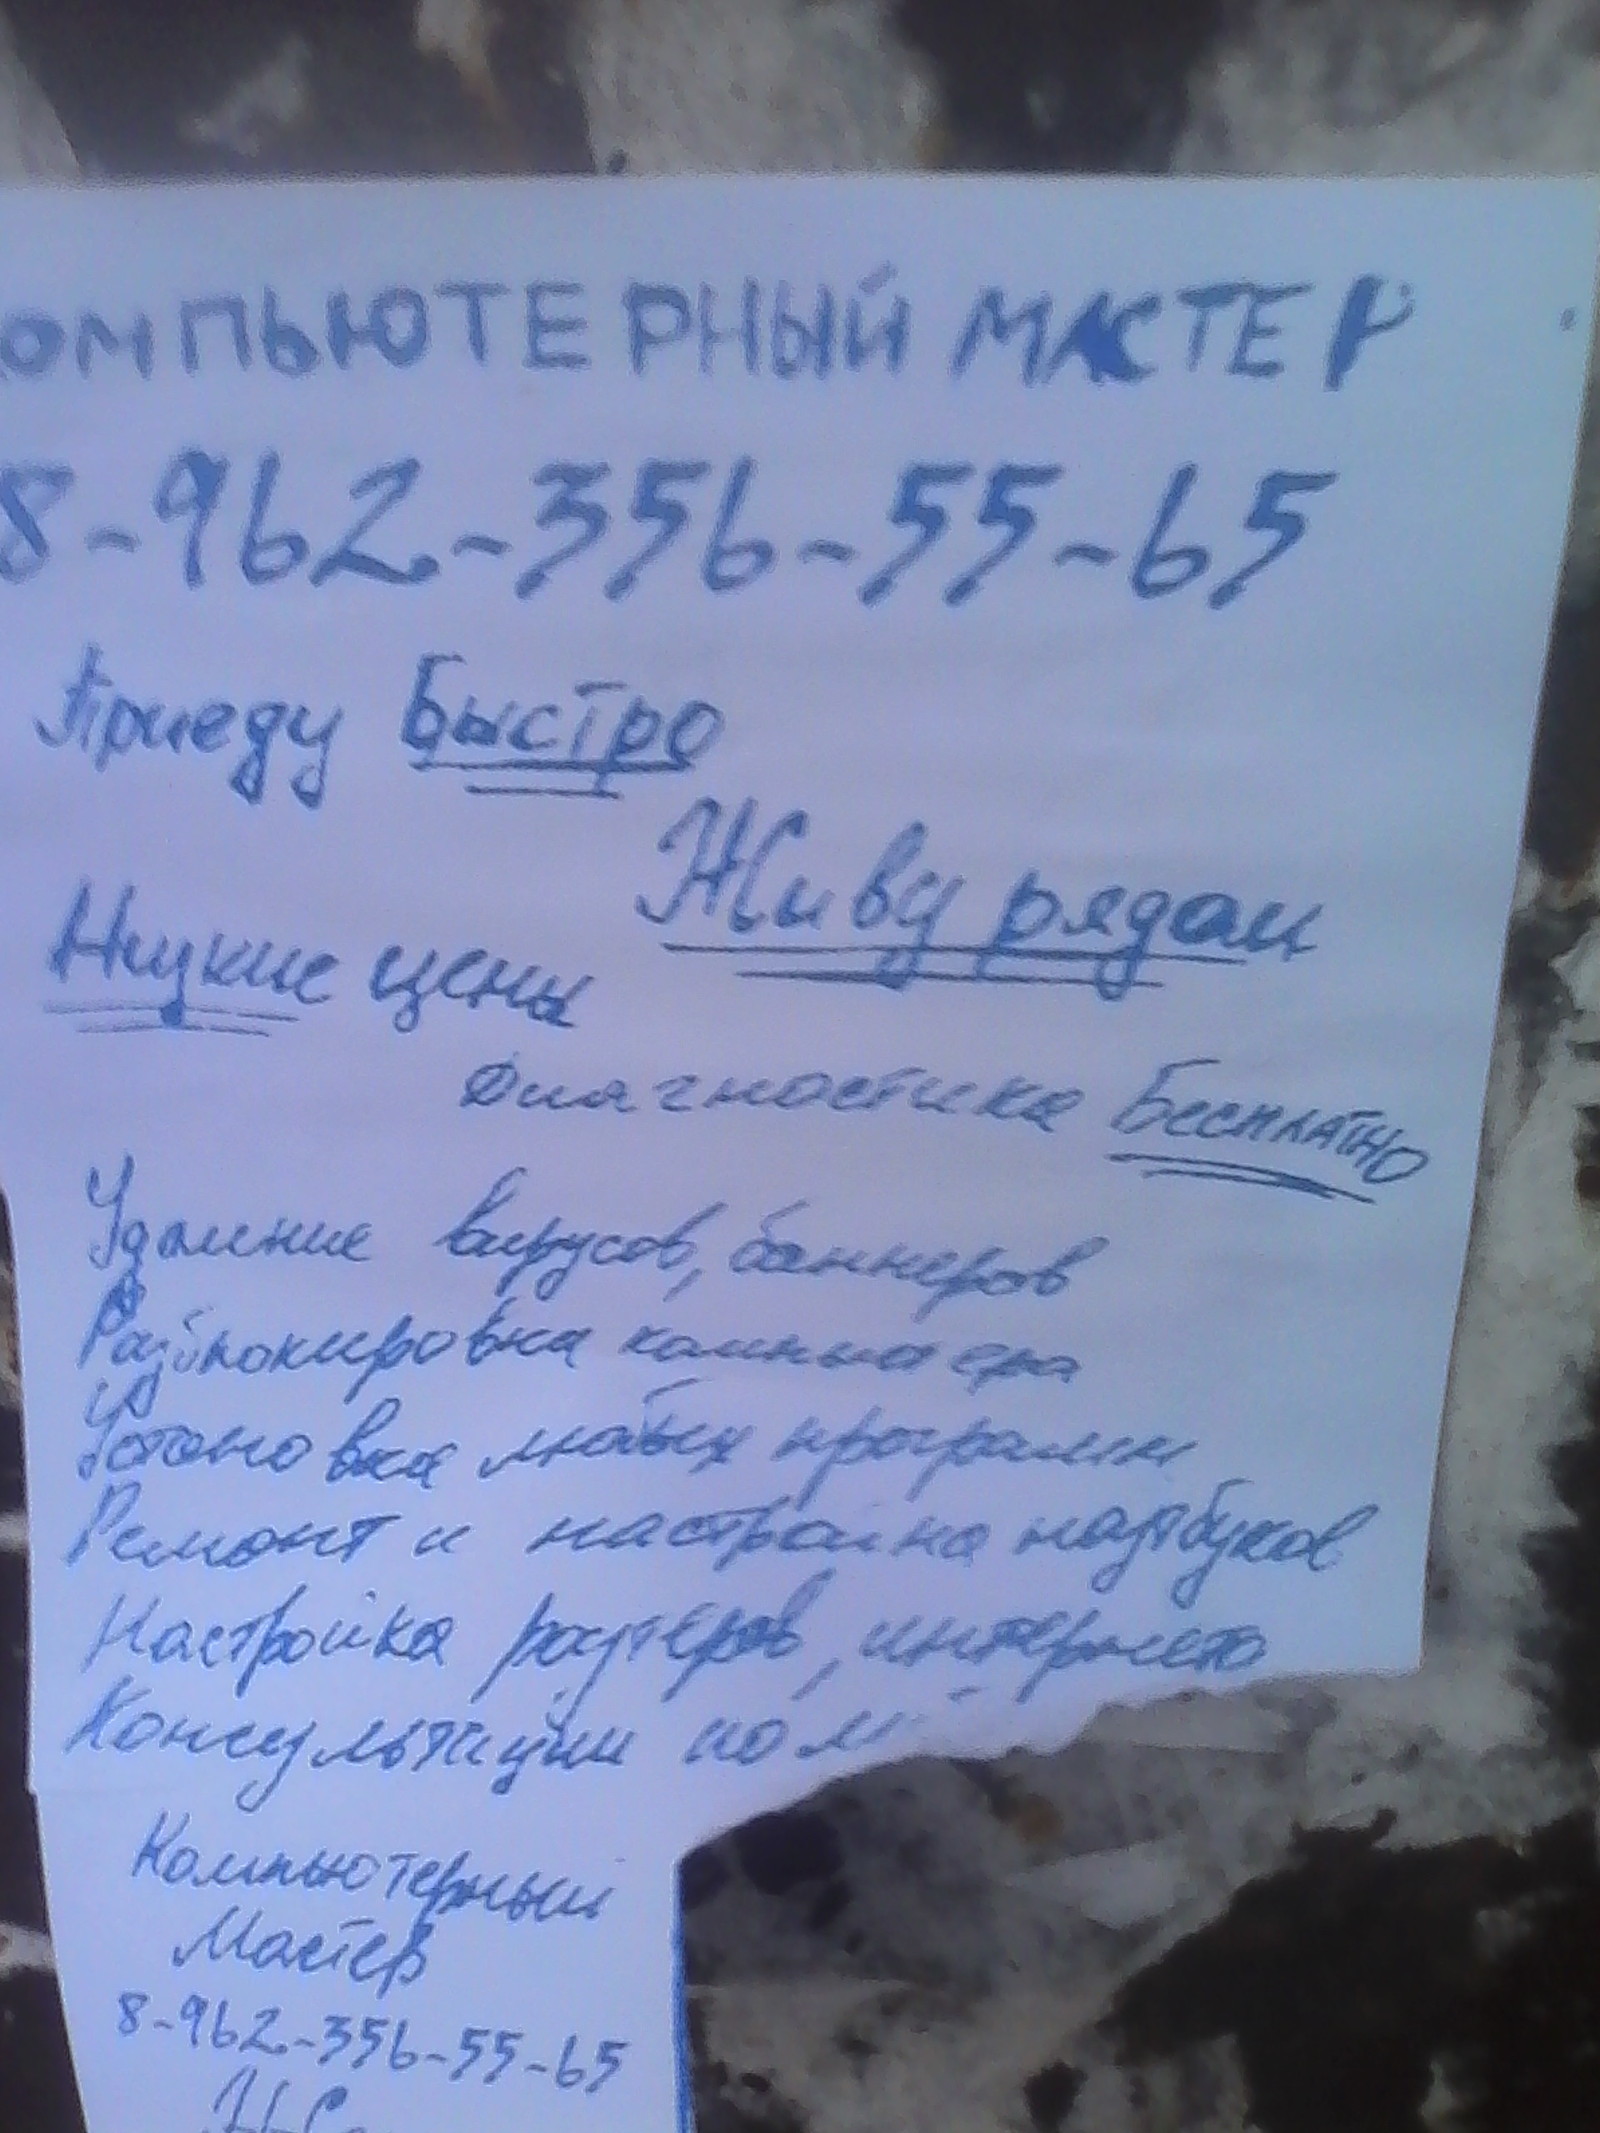 КОМПЬЮТЕРНЫЙ МАСТЕР
8-962-356-55-65
Приеду Быстро
Живу рядом
Низкие цены
Диагностика Бесплатно
Удаление вирусов, баннеров
Разблокировка компьютера
Установка любых программ
Ремонт и настройка ноутбуков
Настройка роутеров, интернета
Консультации по
Компьютерный
Мастер
8-962-356-55-65